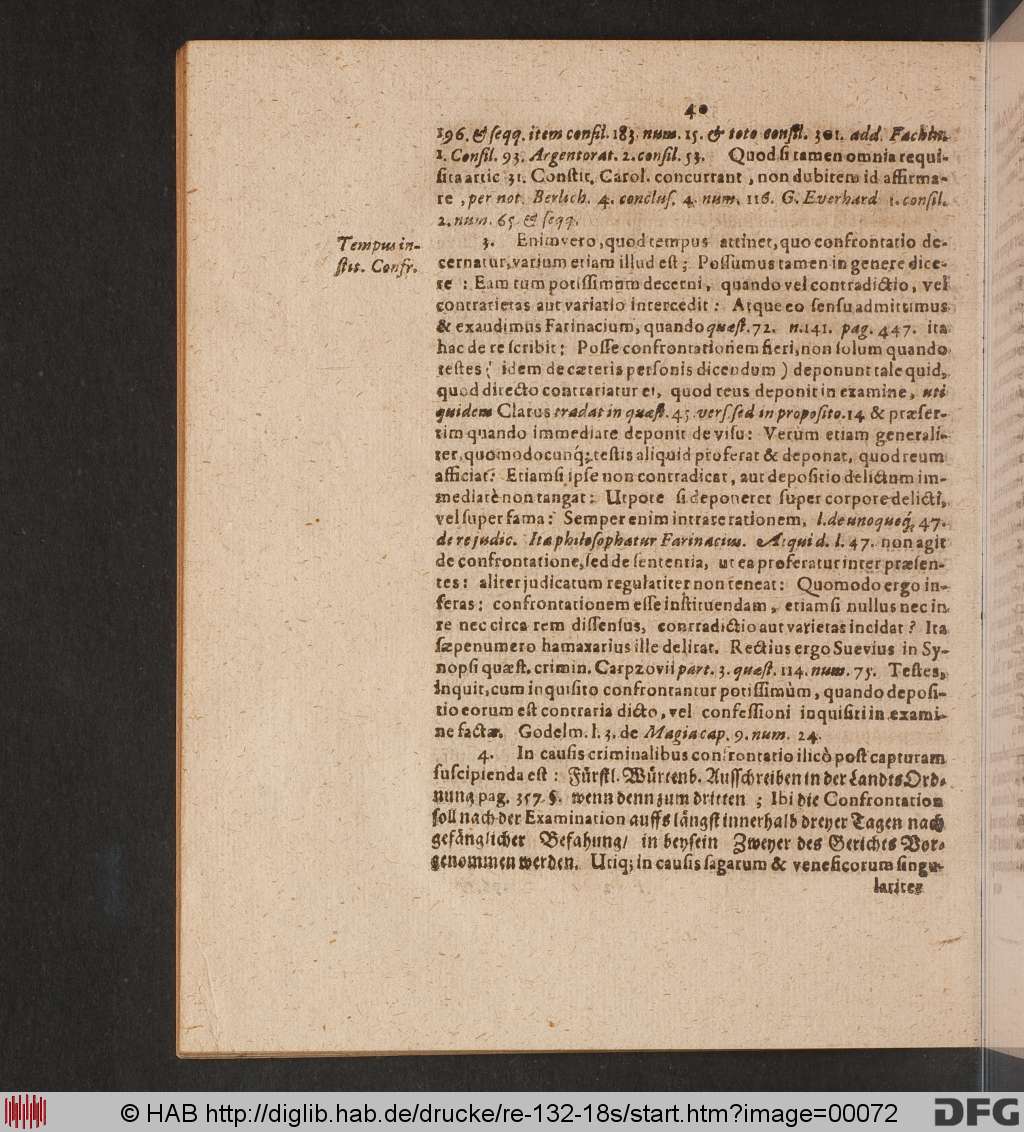 40
196. & ſeqq. item conſil. 183. num. 15. & toto conſil. 301. add. Fachin.
1. Conſil. 93. Argentorat. 2. conſil. 53. Quod ſi tamen omnia requi-
ſita artic 31. Conſtit. Carol. concurrant, non dubitem id affirma-
re, per not. Berlich. 4. concluſ. 4. num. 116. G. Everhard 1. conſil.
2. num. 65. & ſeqq.
Tempus in-
ſtit. Confr.
3. Enimvero, quod tempus attinet, quo confrontatio de-
cernatur, varium etiam illud eſt; Poſſumus tamen in genere dice-
re: Eam tum potiſſimum decerni, quando vel contradictio, vel
contrarietas aut variatio intercedit: Atque eo ſenſu admittimus
& exaudimus Farinacium, quando quæſt. 72. n. 141. pag. 447. ita
hac de re ſcribit: Poſſe confrontationem fieri, non ſolum quando
teſtes (idem de cæteris perſonis dicendum) deponunt tale quid,
quod directo contrariatur ei, quod reus deponit in examine, uti
quidem Clarus tradat in quæſt. 45. verſ. ſed in propoſito. 14 & præſer-
tim quando immediate deponit de viſu: Verùm etiam generali-
ter, quomodocunq; teſtis aliquid proferat & deponat, quod reum
afficiat: Etiamſi ipſe non contradicat, aut depoſitio delictum im-
mediatè non tangat: Utpote ſi deponeret ſuper corpore delicti,
vel ſuper fama: Semper enim intrare rationem, l. de unoquoq; 47.
de re judic. Ita philoſophatur Farinacius. Atqui d. l. 47. non agit
de confrontatione, ſed de ſententia, ut ea proferatur inter præſen-
tes: aliter judicatum regulariter non teneat: Quomodo ergo in-
feras: confrontationem eſſe inſtituendam, etiamſi nullus nec in
re nec circa rem diſſenſus, contradictio aut varietas incidat? Ita
ſæpenumero hamaxarius ille delirat. Rectius ergo Suevius in Sy-
nopſi quæſt. crimin. Carpzovii part. 3. quæſt. 114. num. 75. Teſtes,
inquit, cum inquiſito confrontantur potiſſimùm, quando depoſi-
tio eorum eſt contraria dicto, vel confeſſioni inquiſiti in exami-
ne factæ. Godelm. l. 3. de Magia cap. 9. num. 24.
4. In cauſis criminalibus confrontatio ilicò poſt capturam
ſuſcipienda eſt: Fürſtl. Würtenb. Auſſchreiben in der LandtsOrd-
nung pag. 357. §. wenn denn zum dritten; Ibi die Confrontation
ſoll nach der Examination auffs längſt innerhalb dreyer Tagen nach
gefänglicher Befahung/ in beyſein Zweyer des Gerichts Vor-
genommen werden. Utiq; in cauſis ſagarum & veneficorum ſingu-
lariter
© HAB http://diglib.hab.de/drucke/re-132-18s/start.htm?image=00072
DFG